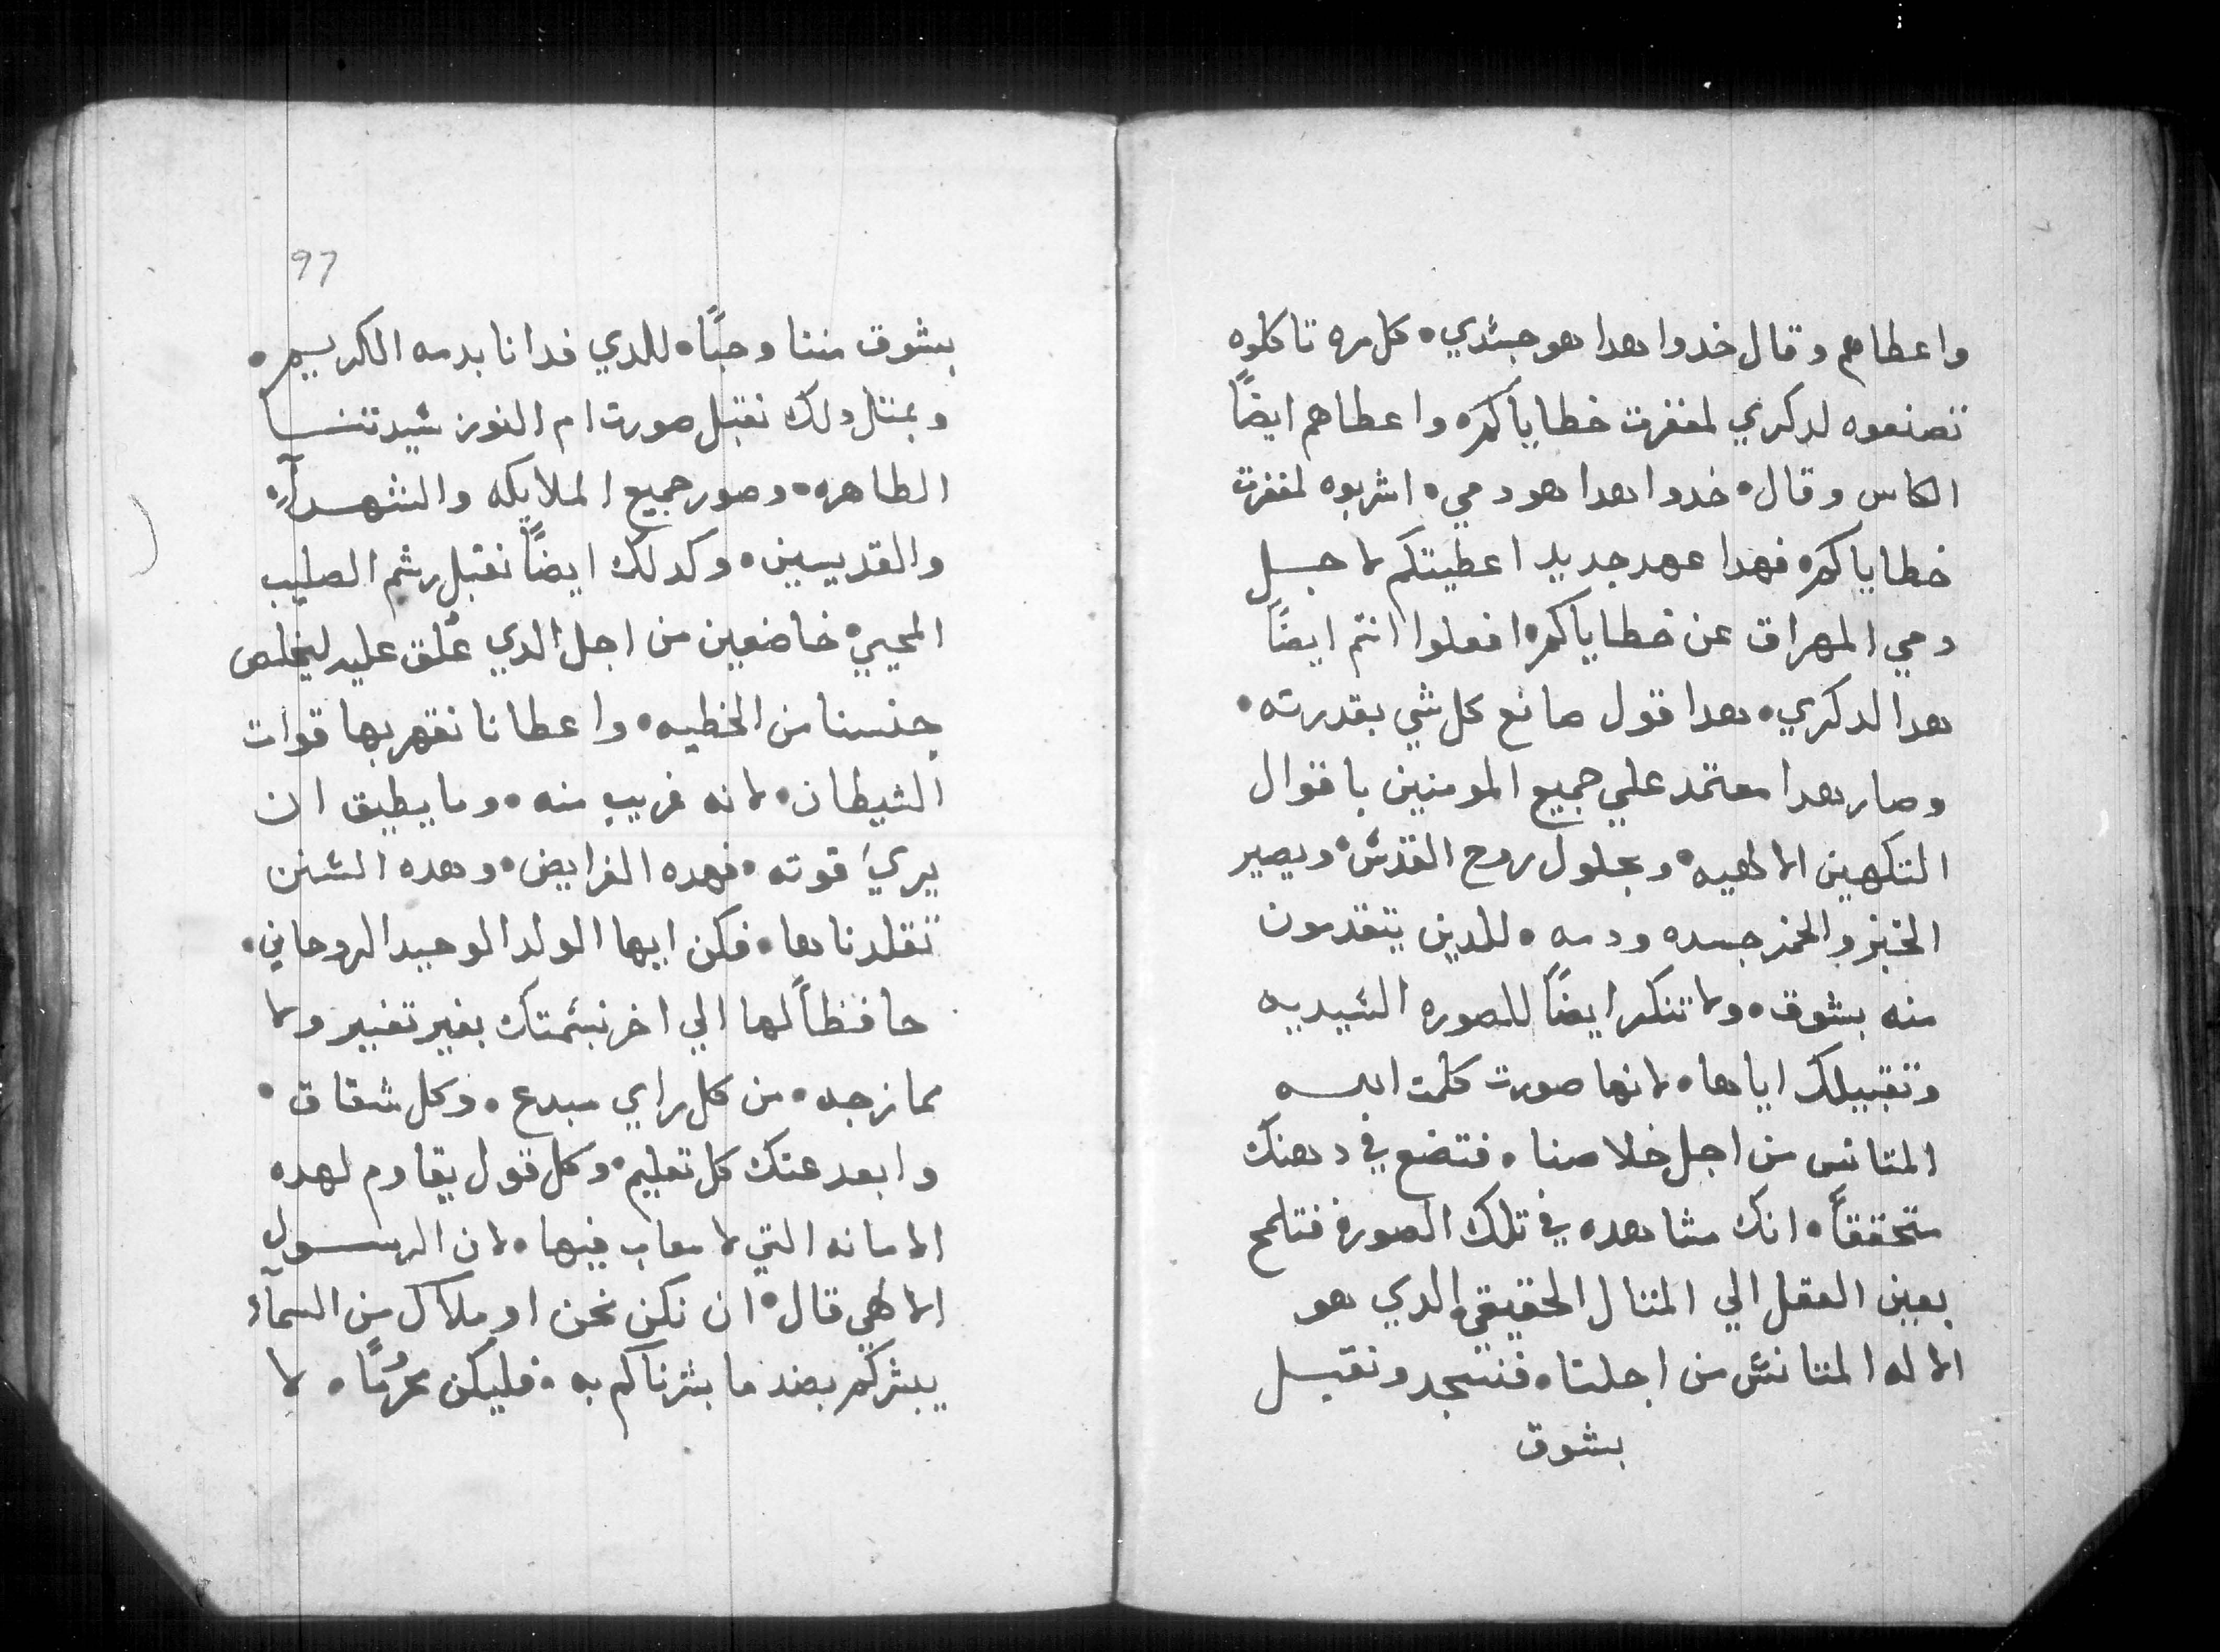 واعطاهم وقال خدوا هدا هو جسدي • كل مره تاكلوه
تصنعوه لدكري لمغفرت خطاياكم • واعطاهم ايضًا
الكاس وقال • خدوا هدا هو دمي • اشربوه لمغفرت
خطاياكم • فهدا عهد جديد اعطيتكم لاجل
دمي المهراق عن خطاياكم • افعلوا انتم ايضًا
هدا لدكري • هدا قول صانع كل شي بقدرته •
وصار هدا معتمد علي جميع المومنين باقوال
التكهين الالهيه • وبحلول روح القدس • ويصير
الخبز والخمر جسده ودمه • للدين يتقدمون
منه بشوق • ولا تنكر ايضًا للصوره السيديه
وتقبيلك اياها • لانها صورت كلمت الله
المتانس من اجل خلاصنا • فتضع في دهنك
متحققًا • انك مشاهده في تلك الصوره فتلمح
بعين العقل الي المتال الحقيقي الدي هو
الاله المتانس من اجلنا • فنسجد ونقبل
بشوق
97
بشوق مننا وحبًا • للدي فدانا بدمه الكريم •
وبمتال دلك نقبل صورت ام النور سيدتنا
الطاهره • وصور جميع الملايكه والشهدآء •
والقديسين • وكدلك ايضًا نقبل رشم الصليب
المحيي • خاضعين من اجل الدي عُلق عليه ليخلص
جنسنا من الخطيه • واعطانا نقهر بها قوات
الشيطان • لانه غريب منه • وما يطيق ان
يري قوته • فهده الفرايض • وهده السنن
تقلدناها • فكن ايها الولد الوحيد الروحاني •
حافظًا لها الي اخر نسمتك بغير تغيير ولا
ممازجه • من كل راي مبدع • وكل شقاق •
وابعد عنك كل تعليم • وكل قول يقاوم لهده
الامانه التي لا معاب فيها • لان الرسول
الالهي قال • ان نكن نحن او ملاك من السمآء
يبشركم بضد ما بشرناكم به • فليكن محرُمًا • لا